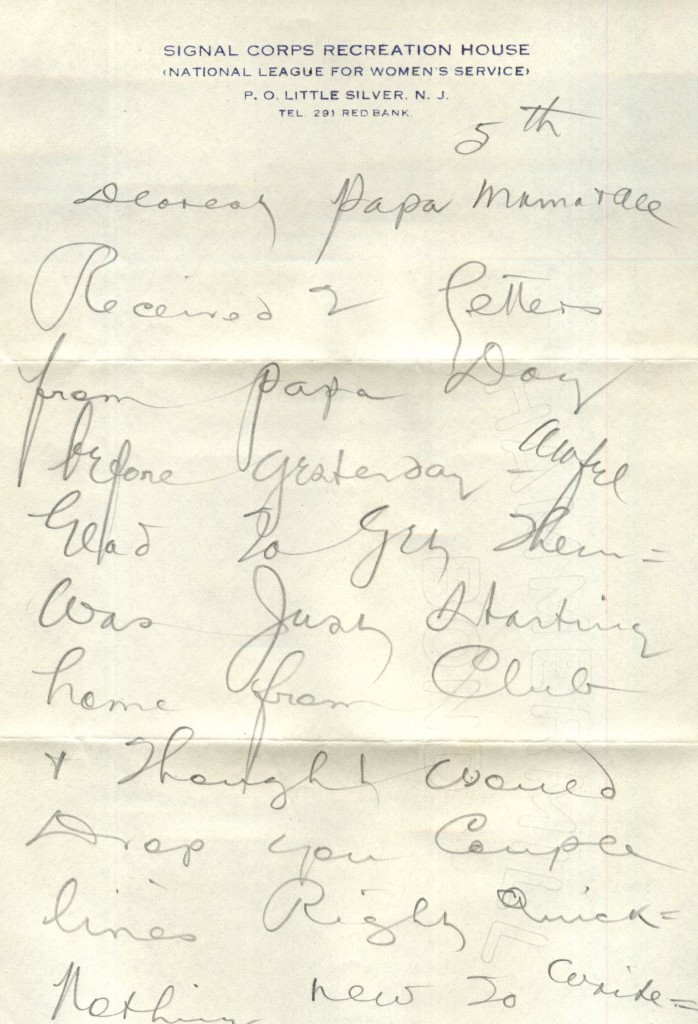 SIGNAL CORPS RECREATION HOUSE
(NATIONAL LEAGUE FOR WOMEN'S SERVICE)
P. O. LITTLE SILVER, N. J.
TEL. 291 RED BANK.
5th
Dearest Papa Mama + all
Received 2 letters
from papa Day
before yesterday - awful
Glad to get them =
Was Just starting
home from Club
+ thought would
Drop you Couple
lines Right Quick =
Nothing new to write =